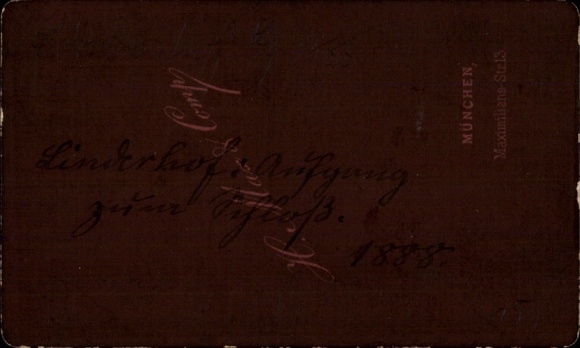 Linderhof: Aufgang
zum Schloß.
1888.
& Comp
MÜNCHEN,
Maximilians-Str. 13